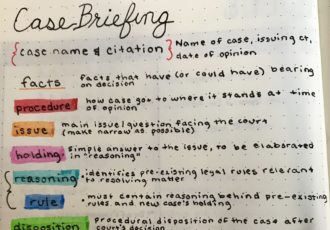 Case Briefing
{case name & citation} Name of case, issuing ct, date of opinion
facts facts that have (or could have) bearing on decision
procedure how case got to where it stands at time of opinion
issue main issue/question facing the court (make narrow as possible)
holding simple answer to the issue, to be elaborated in "reasoning"
reasoning • identifies pre-existing legal rules relevant to resolving matter
rule • must contain reasoning behind pre-existing rules and new case's holding
disposition procedural disposition of the case after court's decision